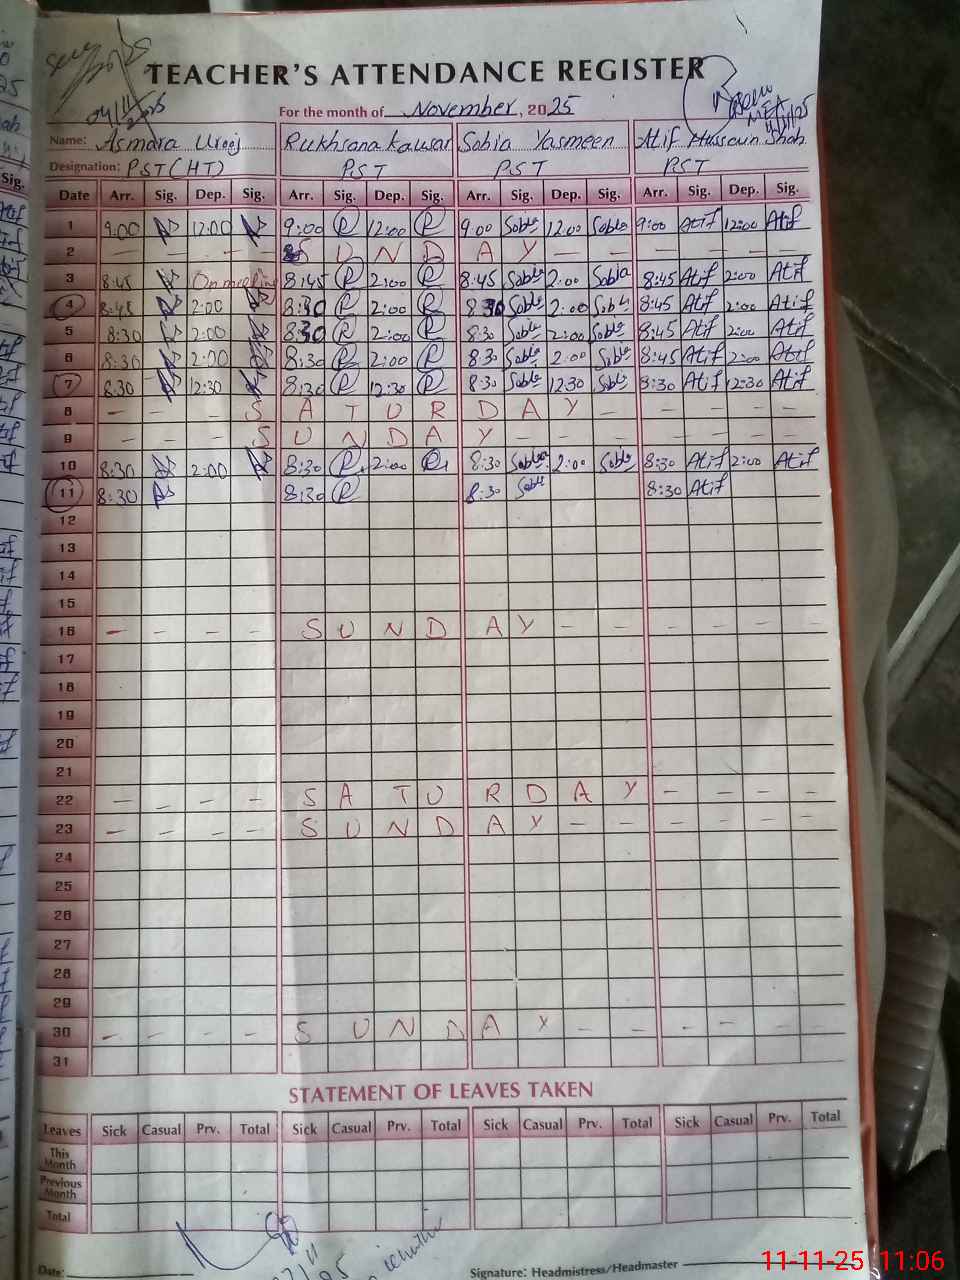 TEACHER'S ATTENDANCE REGISTER
For the month of November, 2025
Name: Asmara Urooj Rukhsana Kausar Sobia Yasmeen Atif Hussain Shah
Designation: PST(HT) PST PST PST
Date Arr. Sig. Dep. Sig. Arr. Sig. Dep. Sig. Arr. Sig. Dep. Sig. Arr. Sig. Dep. Sig.
1 9:00 12:00 9:00 R 12:00 R 9:00 Sobia 12:00 Sobia 9:00 Atif 12:00 Atif
2 - - - - S U N D A Y - - - - - -
3 8:45 On meeting 8:45 R 2:00 R 8:45 Sobia 2:00 Sobia 8:45 Atif 2:00 Atif
4 8:45 2:00 8:30 R 2:00 R 8:30 Sobia 2:00 Sobia 8:45 Atif 2:00 Atif
5 8:30 2:00 8:30 R 2:00 R 8:30 Sobia 2:00 Sobia 8:45 Atif 2:00 Atif
6 8:30 2:00 8:30 R 2:00 R 8:30 Sobia 2:00 Sobia 8:45 Atif 2:00 Atif
7 8:30 12:30 8:30 R 12:30 R 8:30 Sobia 12:30 Sobia 8:30 Atif 12:30 Atif
8 - - - S A T U R D A Y - - - - -
9 - - - S U N D A Y - - - - - -
10 8:30 2:00 8:30 R 2:00 R 8:30 Sobia 2:00 Sobia 8:30 Atif 2:00 Atif
11 8:30 8:30 R 8:30 Sobia 8:30 Atif
12
13
14
15
16 - - - - S U N D A Y - - - - - -
17
18
19
20
21
22 - - - - S A T U R D A Y - - - -
23 - - - - S U N D A Y - - - - - -
24
25
26
27
28
29
30 - - - - S U N D A Y - - - - - -
31
STATEMENT OF LEAVES TAKEN
Leaves Sick Casual Prv. Total Sick Casual Prv. Total Sick Casual Prv. Total Sick Casual Prv. Total
This Month
Previous Month
Total
Date:
Signature: Headmistress/Headmaster
11-11-25 11:06